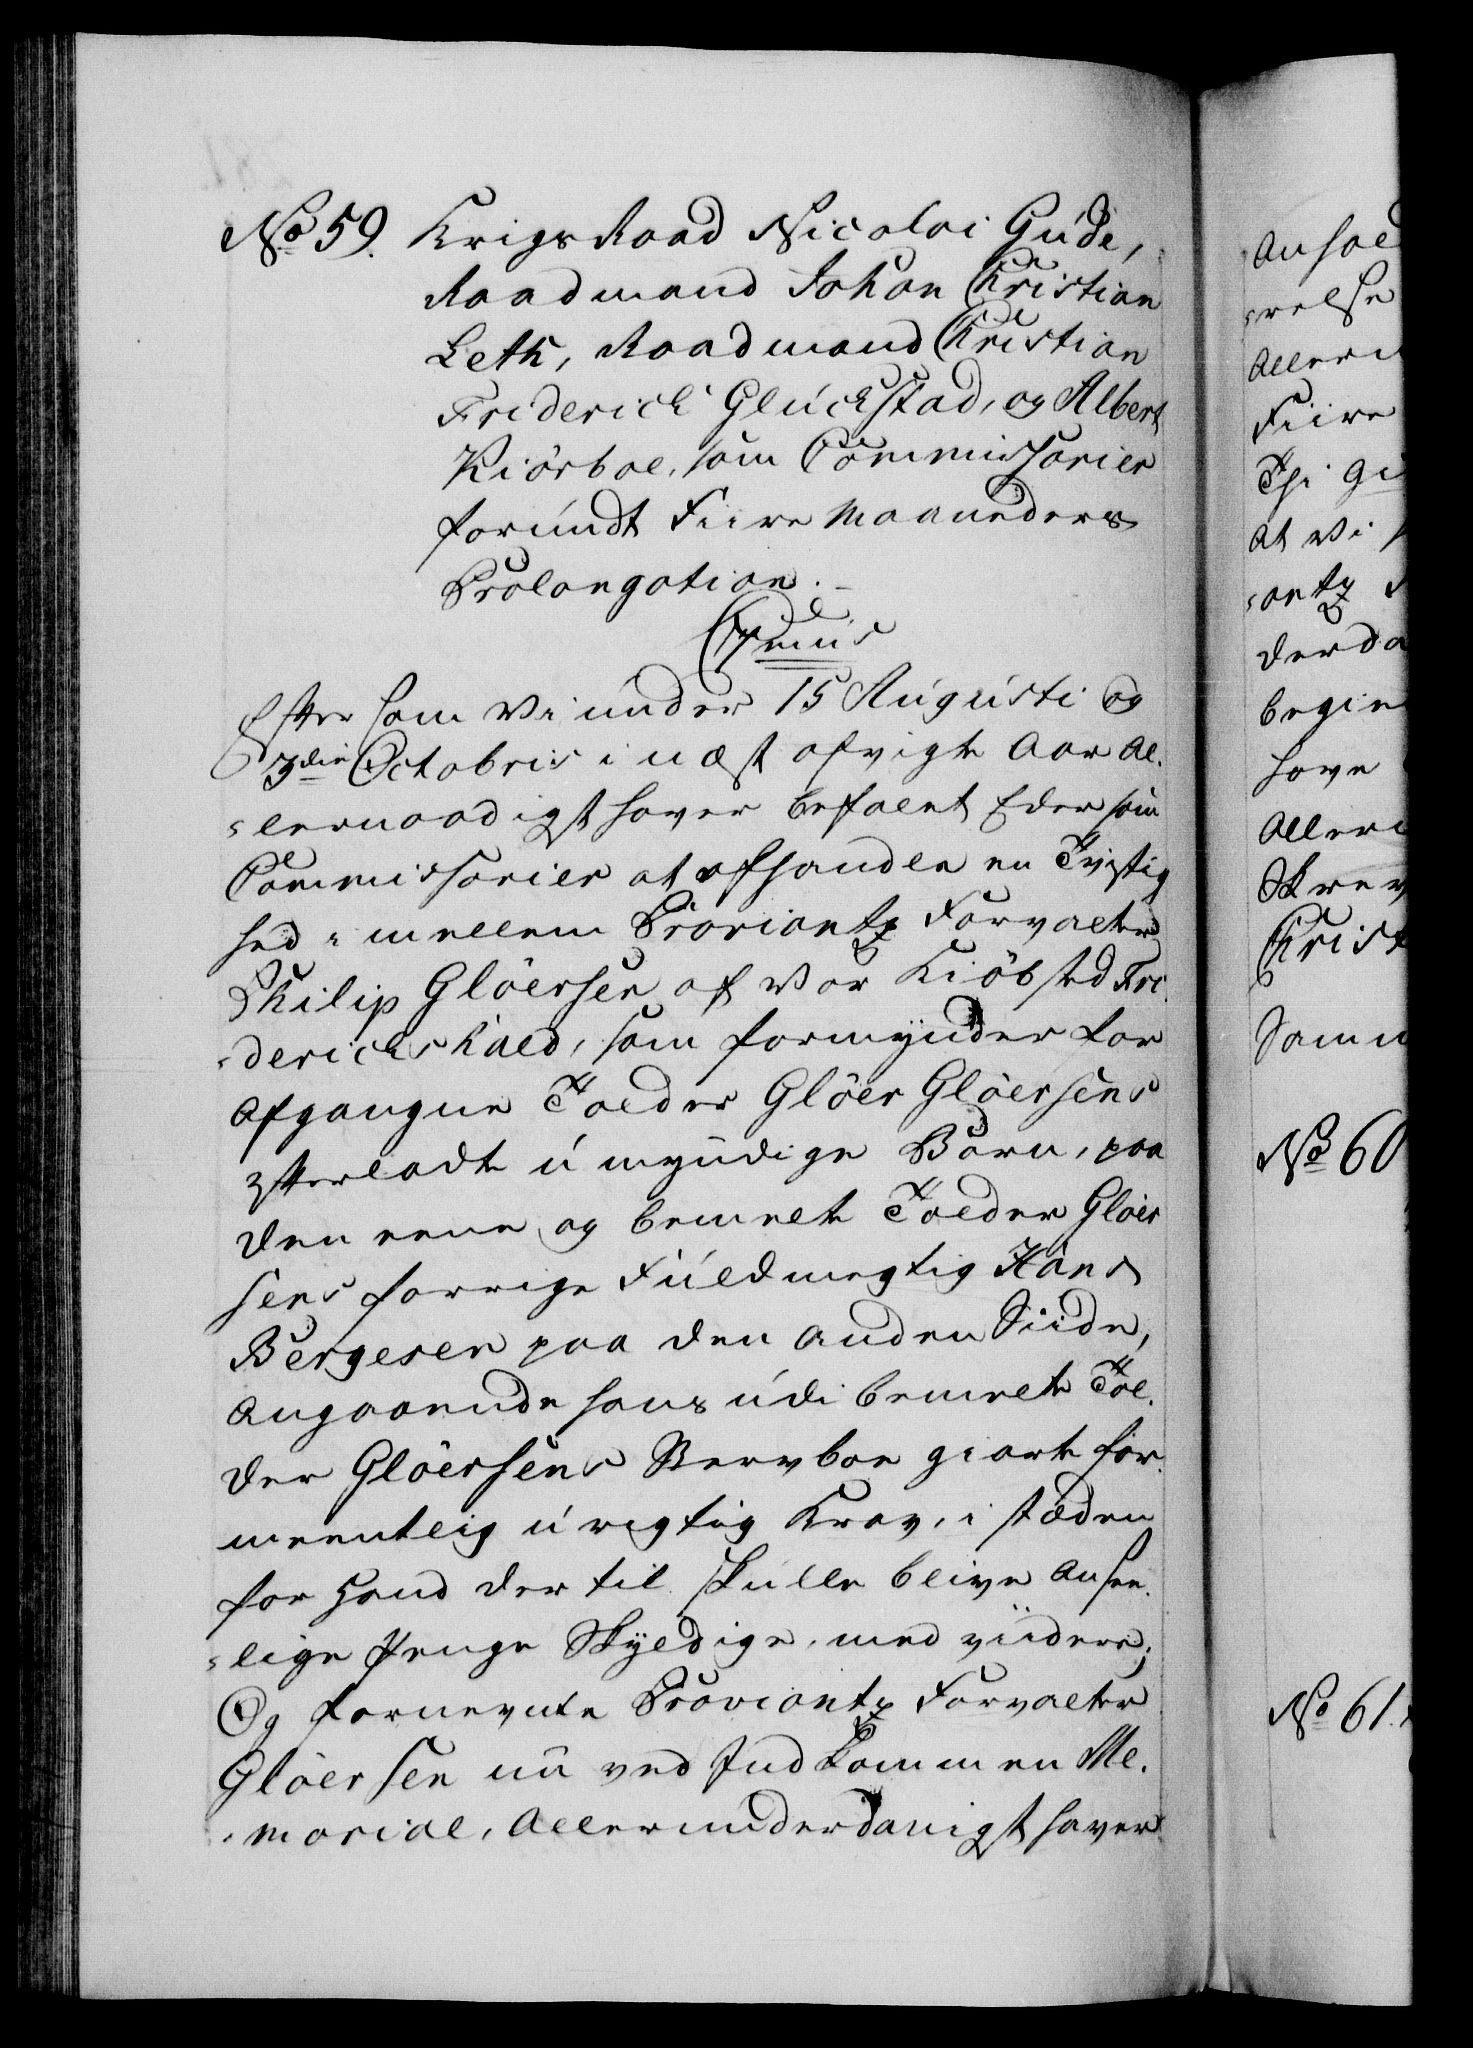 No 59. Krigs Raad Nicolai Gude,
Raadmand Johan Christian
Leth, Raadmand Christian
Friderich Glückstad, og Albert
Kiörboe, som Commissarier
forundt Fiire Maaneders
Prolongation.
C7mus
Efter som Vi under 15 Augusti og
3die Octobris i næst afvigte Aar Al-
lernaadigst haver befalet Eder som
Commissarier at afhandle en Tvistig
hed imellem Proviantz Forvalter
Philip Glöersen af Vor Kiöbsted Fri-
derichshald, som formynder for
Afgangne Tolder Glöer Glöersens
efterladte umyndige Börn, paa
den eene og bemelte Tolder Glöer
sens forrige Fuldmegtig Hans
Bergesen paa den anden Siide,
Angaaende hans udi bemelte Tol-
der Glöersens Stervboe giorte for
meentlig urigtig Krav, i stæden
for hand der til skulle blive Ansee-
lige Penge Skyldige, med viidere;
Og fornevnte Proviantz Forvalter
Glöersen nu ved Indkommen Me-
morial, Allerunderdanigst haver
Anhol
relse
Allern
Fiire
Thi gi
At Vi
antz
derda
begie
have
Allern
Skrev
Christ
Samm
No 60
No 61.